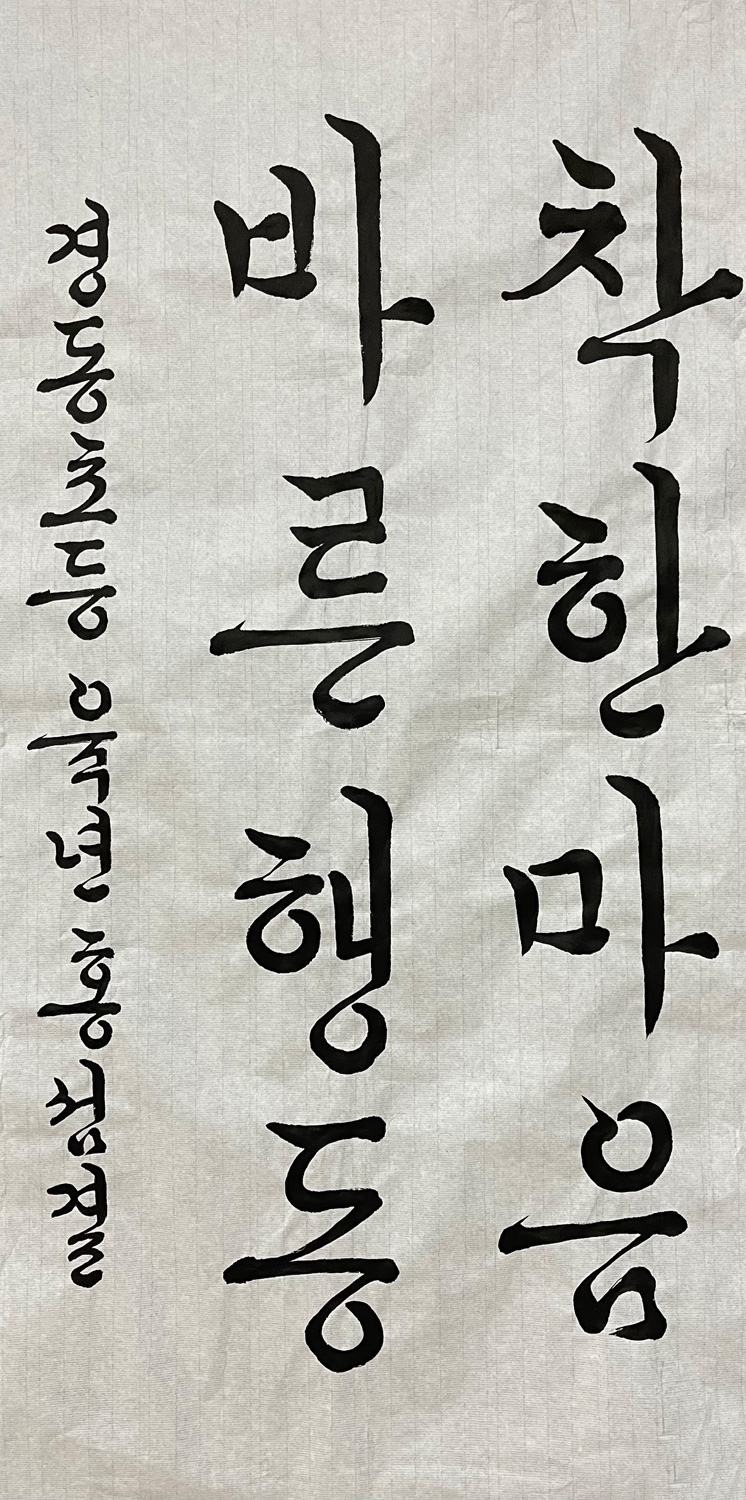 착한마음
바른행동
정동초등 육년 홍심결